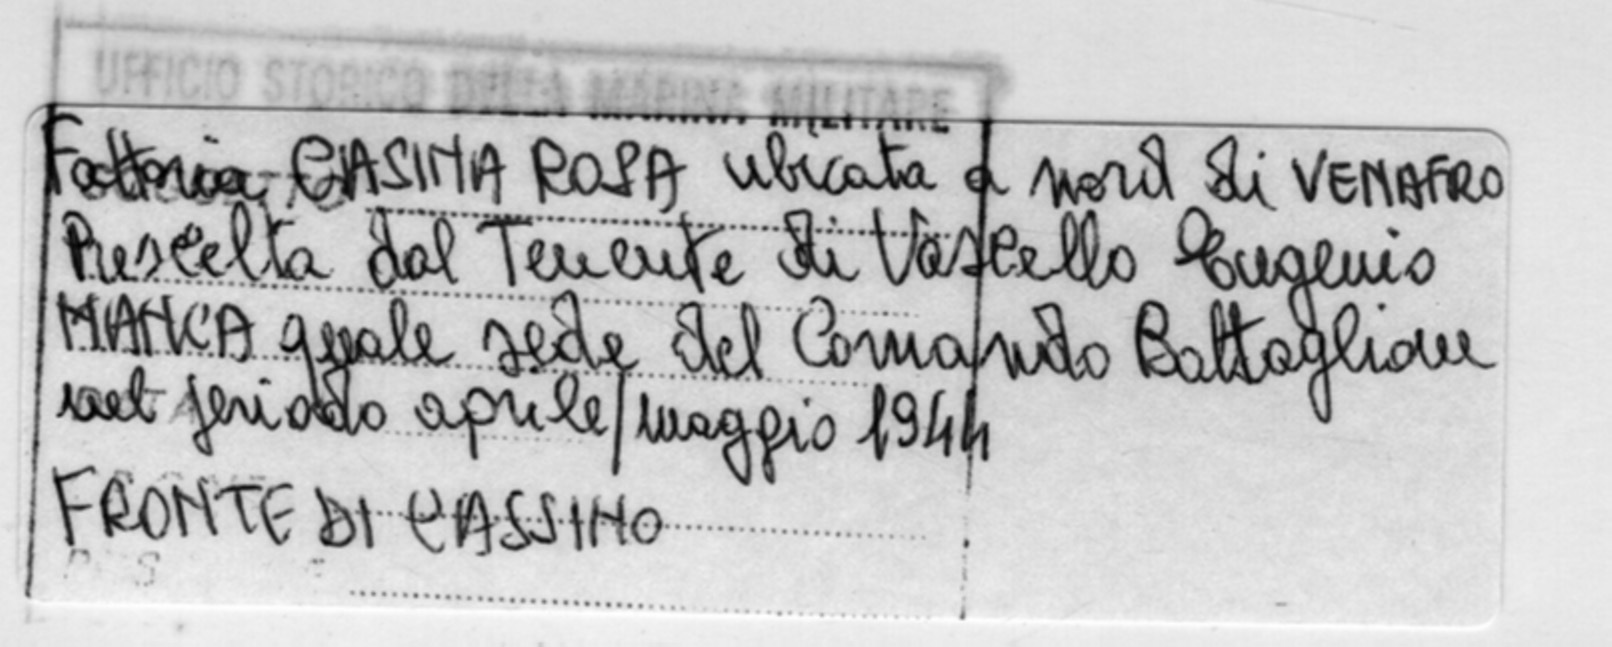 UFFICIO STORICO DELLA MARINA MILITARE
Fattoria CASINA ROSA ubicata a nord di VENAFRO
Prescelta dal Tenente di Vascello Eugenio
MANCA quale sede del Comando Battaglione
nel periodo aprile/maggio 1944
FRONTE DI CASSINO